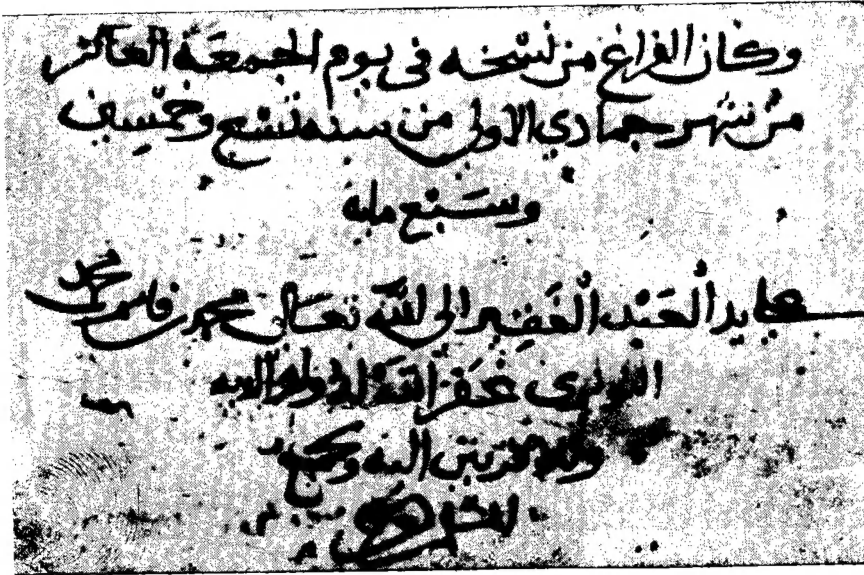 وكان الفراغ من نسخه في يوم الجمعة العاشر
من شهر جمادي الاولى من سنه تسع وخمسين
وسبع مايه
علي يد العبد الفقير الي الله تعالى محمد بن قاسم بن محمد
غفر الله له ولوالديه
والاقربين اليه ولجميع